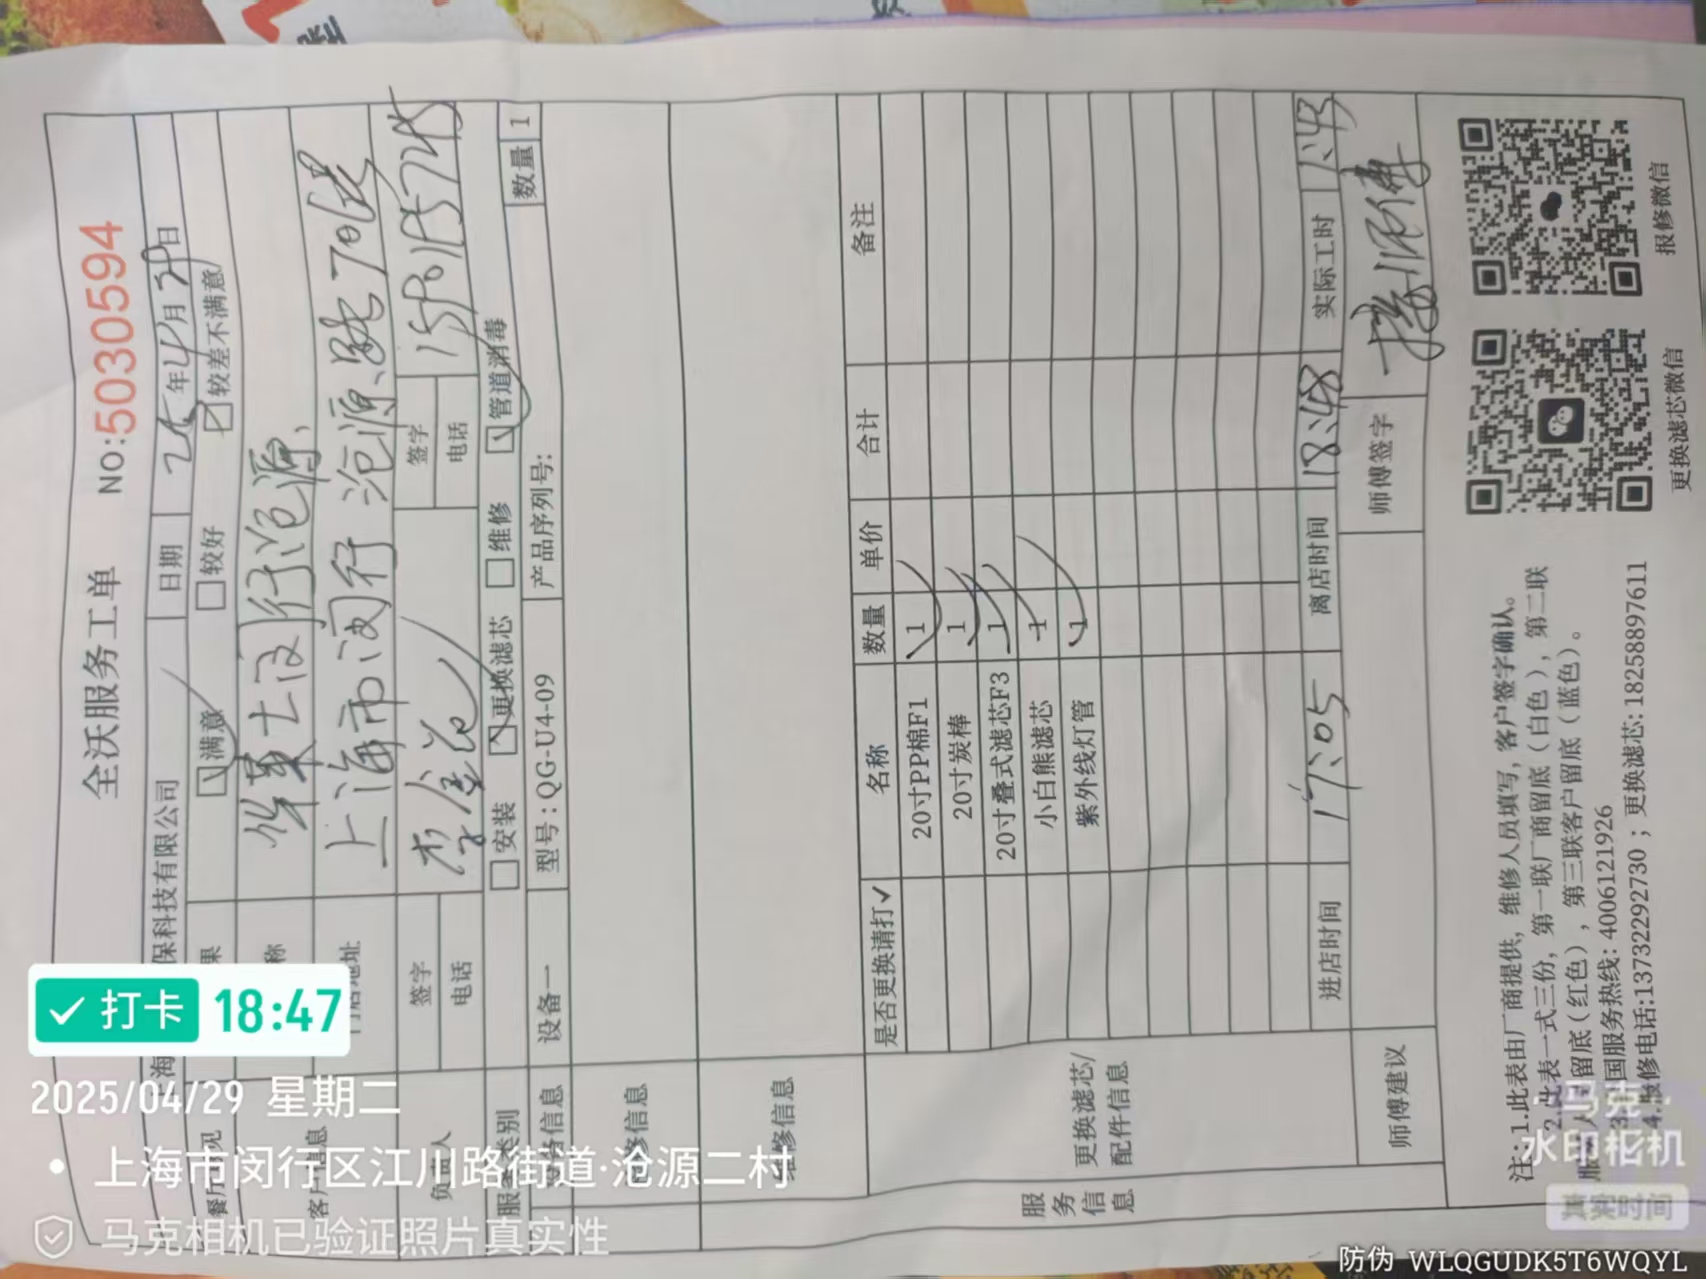 全沃服务工单 NO:5030594
保科技有限公司 日期 25年4月29日
满意 较好 较差不满意
华莱士闵行沧源
上海市闵行沧源路70号
签字 李金花 签字
电话 电话
安装 更换滤芯 维修 管道消毒
设备一 型号:QG-U4-09 产品序列号: 数量 1
维修信息
是否更换请打✓ 名称 数量 单价 合计 备注
20寸PP棉F1 1
20寸炭棒 1
20寸叠式滤芯F3 1
小白熊滤芯 1
紫外线灯管 1
更换滤芯/
配件信息
服务信息
进店时间 17:05 离店时间 18:48 实际工时 1:43
师傅建议 师傅签字
注:1.此表由厂商提供,维修人员填写,客户签字确认。
2.此表一式三份,第一联厂商留底(白色),第二联
留底(红色),第三联客户留底(蓝色)。
国服务热线:4006121926
修电话:13732292730;更换滤芯:18258897611
更换滤芯微信
报修微信
打卡 18:47
2025/04/29 星期二
上海市闵行区江川路街道·沧源二村
马克相机已验证照片真实性
马克
水印相机
真实时间
防伪 WLQGUDK5T6WQYL